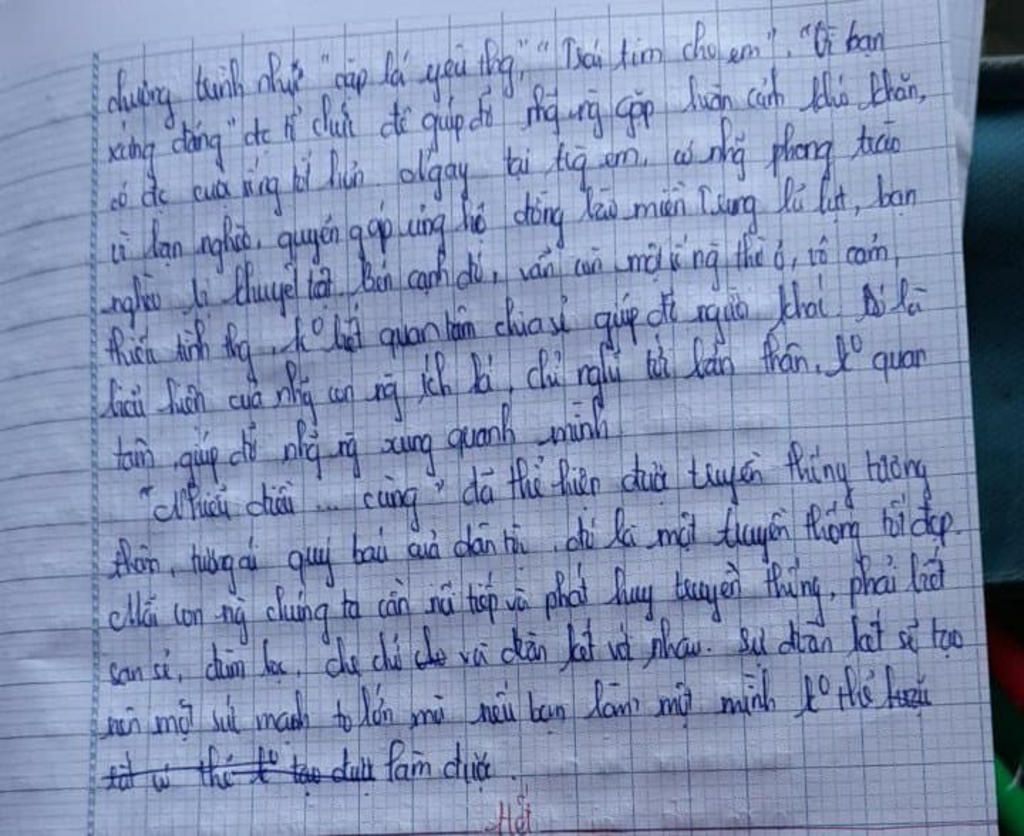 chương trình như "cặp lá yêu thg", "Trái tim cho em", "Vì bạn
xứng đáng" đc tổ chức để giúp đỡ nhg ng gặp hoàn cảnh khó khăn,
có đc cuộc sống tốt hơn. Ngay tại trg em, có nhg phong trào
vì bạn nghèo, quyên góp ủng hộ đồng bào miền Trung lũ lụt, bạn
nghèo bị khuyết tật. Bên cạnh đó, vẫn còn một số ng thờ ơ, vô cảm,
thiếu tình thg, k⁰ biết quan tâm chia sẻ giúp đỡ người khác. Đó là
biểu hiện của nhg con ng ích kỉ, chỉ nghĩ tới bản thân, k⁰ quan
tâm, giúp đỡ nhg ng xung quanh mình
"Nhiễu điều ... cùng" đã thể hiện được truyền thống tương
thân, tương ái quý báu của dân tộc, đó là một truyền thống tốt đẹp.
Mỗi con ng chúng ta cần nối tiếp và phát huy truyền thống, phải biết
san sẻ, đùm bọc, che chở và đoàn kết với nhau. Sự đoàn kết sẽ tạo
nên một sức mạnh to lớn mà nếu bạn làm một mình k⁰ thể
làm được.
Hết